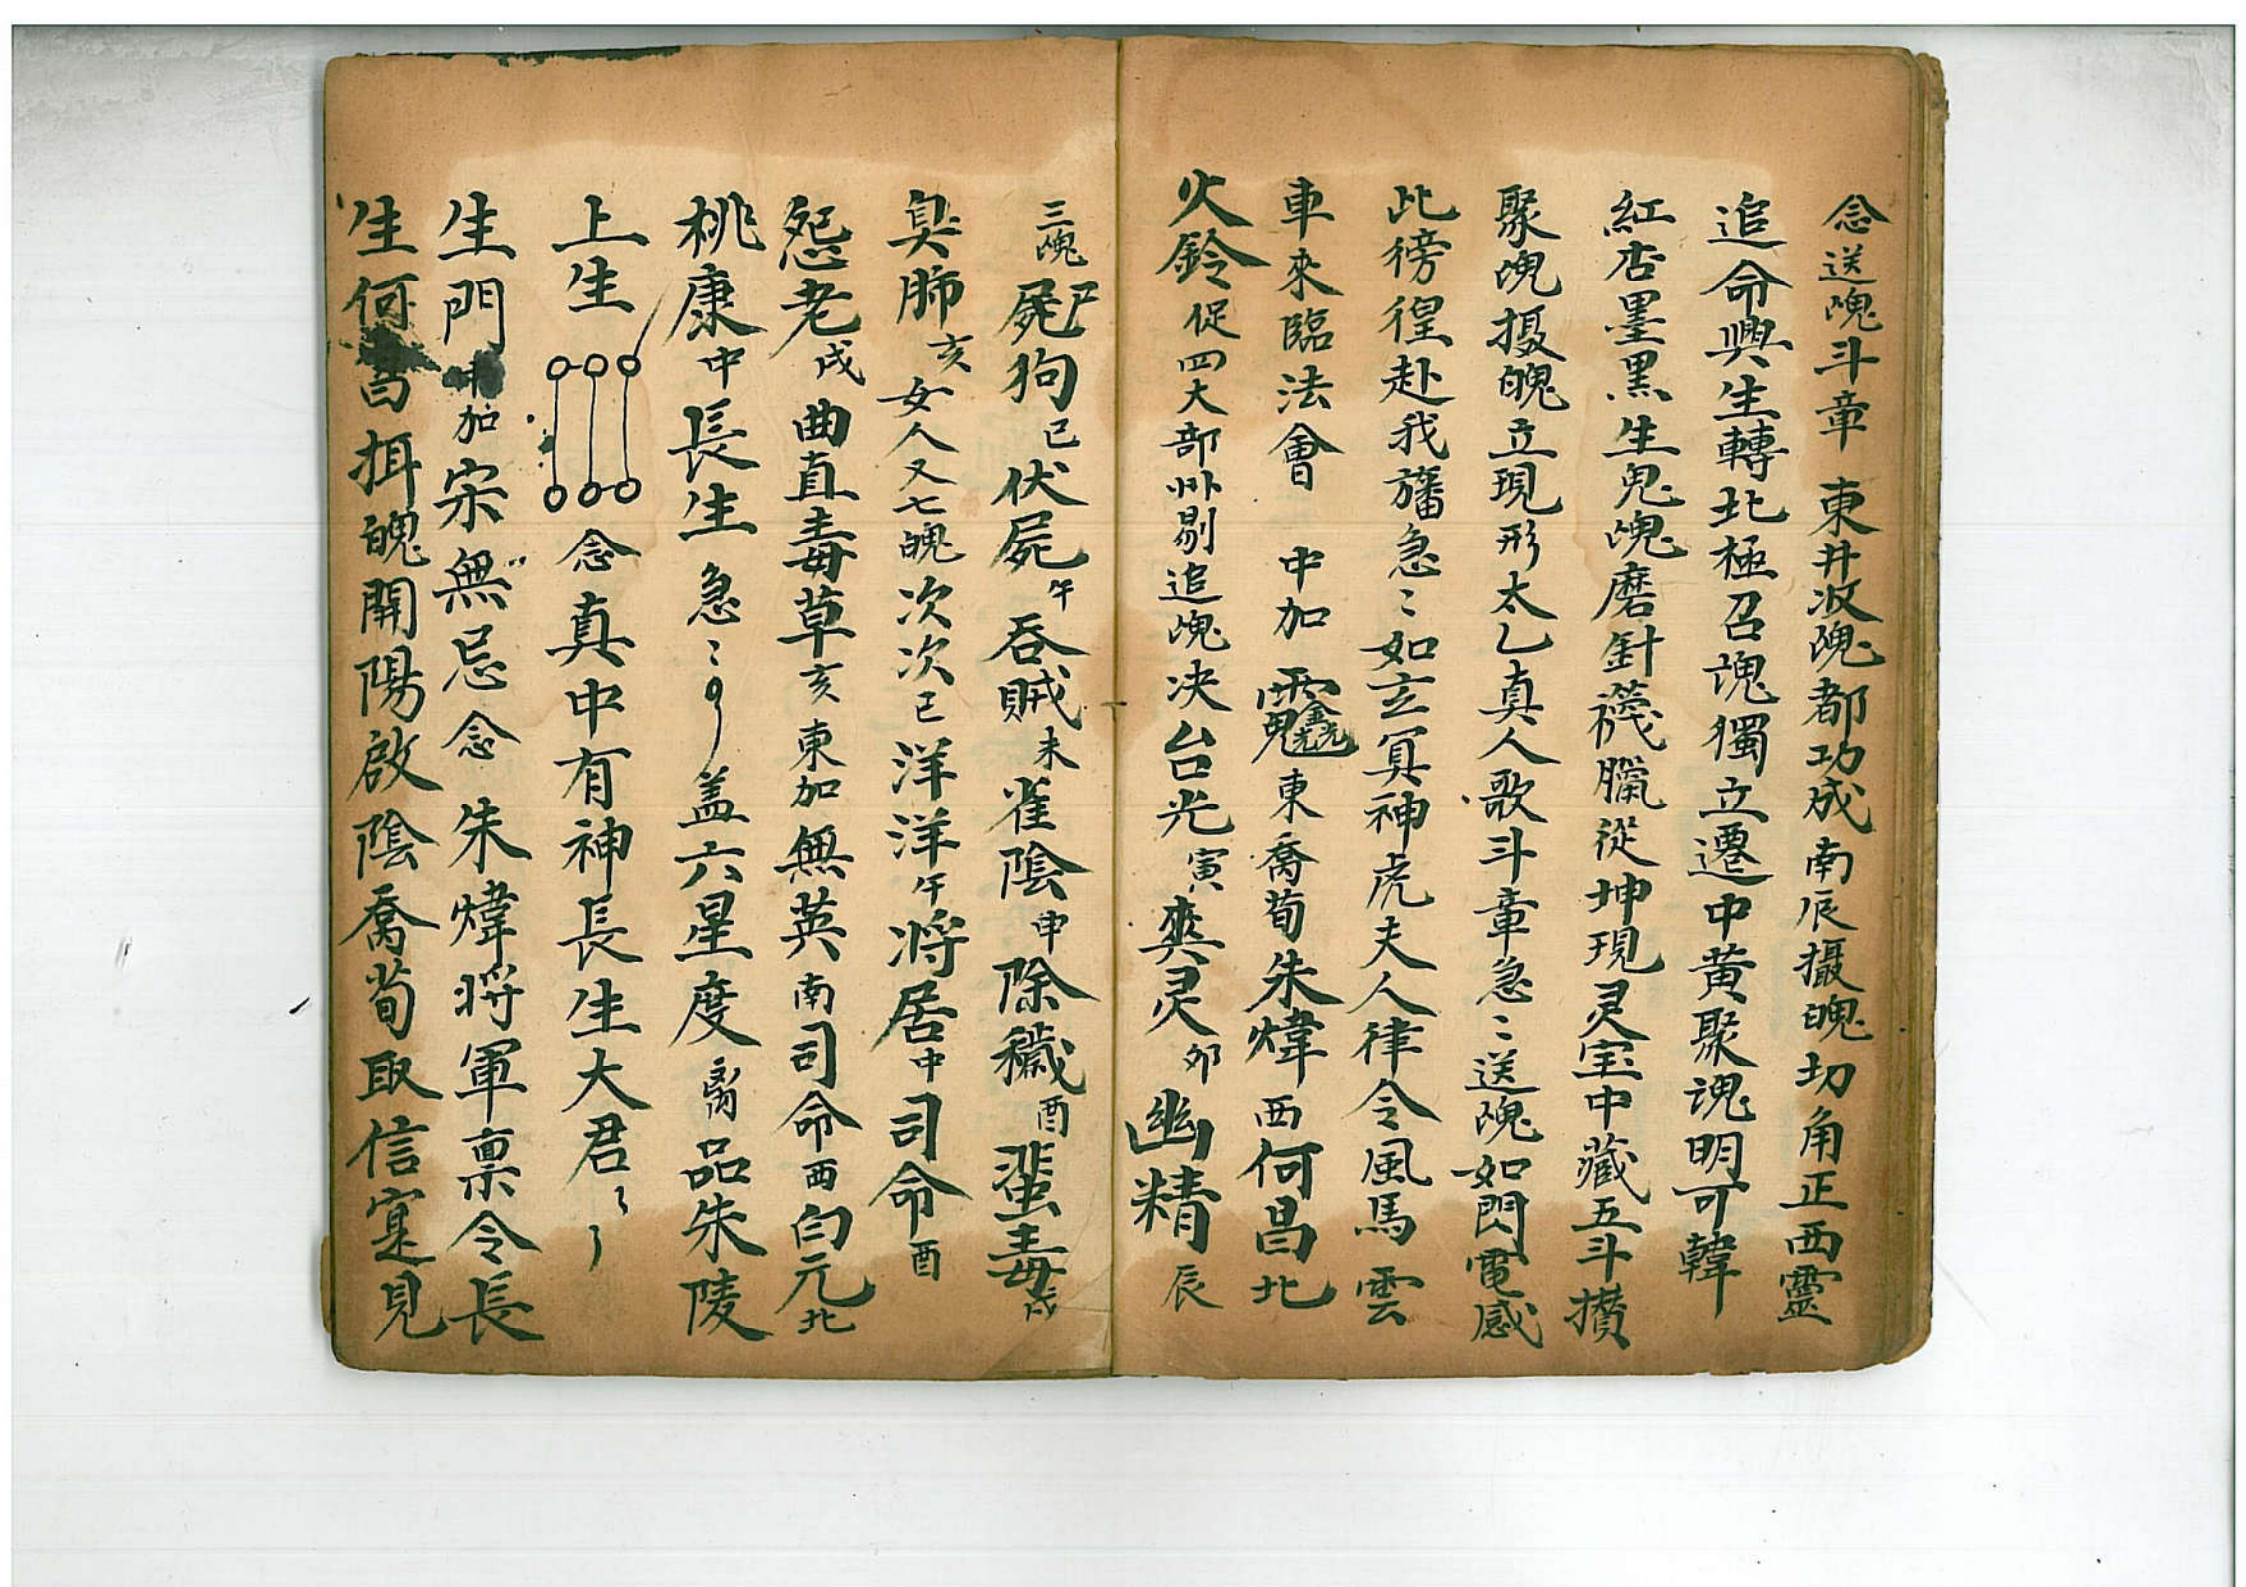 念送魂斗章 東井收魂都功成南辰攝魄切角正西靈
追命興生轉北極召魂獨立遷中黃聚魂明可韓
紅杏墨黑生鬼魂磨針襪臘從坤現灵宝中藏五斗攢
聚魂摄魄立現形太乙真人歌斗章急〻送魂如閃電感
此徬徨赴我旛急〻如玄冥神虎夫人律令風馬雲
車來臨法會 中加 東喬荀朱煒西何昌北
火鈴促四大部 剔追魂决台光寅爽灵卯幽精辰
三魂尸狗巳伏屍午吞賊未雀陰申除穢酉蜚毒戌
臭肺亥女人又七魄次次巳洋洋午将居中司命酉
怨老戌曲直毒草亥東加無英南司命西白元北
桃康中長生急〻盖六星度 品朱陵
上生 念真中有神長生大君
生門 加宋無忌念朱煒将軍禀令長
生何昌 魄開陽啟陰喬荀取信寔見